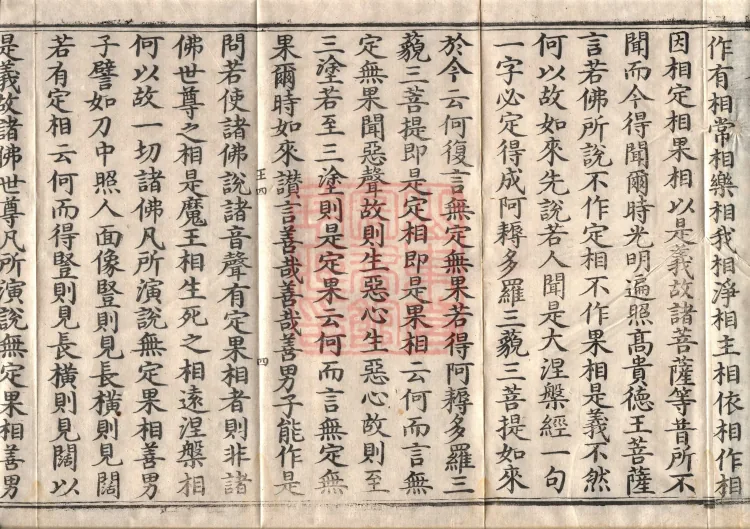 作有相常相樂相我相淨相主相依相作相
因相定相果相以是義故諸菩薩等昔所不
聞而今得聞爾時光明遍照髙貴德王菩薩
言若佛所說不作定相不作果相是義不然
何以故如來先說若人聞是大涅槃經一句
一字必定得成阿耨多羅三藐三菩提如來
於今云何復言無定無果若得阿耨多羅三
藐三菩提即是定相即是果相云何而言無
定無果聞惡聲故則生惡心生惡心故則至
三塗若至三塗則是定果云何而言無定無
果爾時如來讃言善哉善哉善男子能作是
王四
四
問若使諸佛說諸音聲有定果相者則非諸
佛世尊之相是魔王相生死之相遠涅槃相
何以故一切諸佛凡所演說無定果相善男
子譬如刀中照人面像豎則見長橫則見闊
若有定相云何而得豎則見長橫則見闊以
是義故諸佛世尊凡所演說無定果相善男